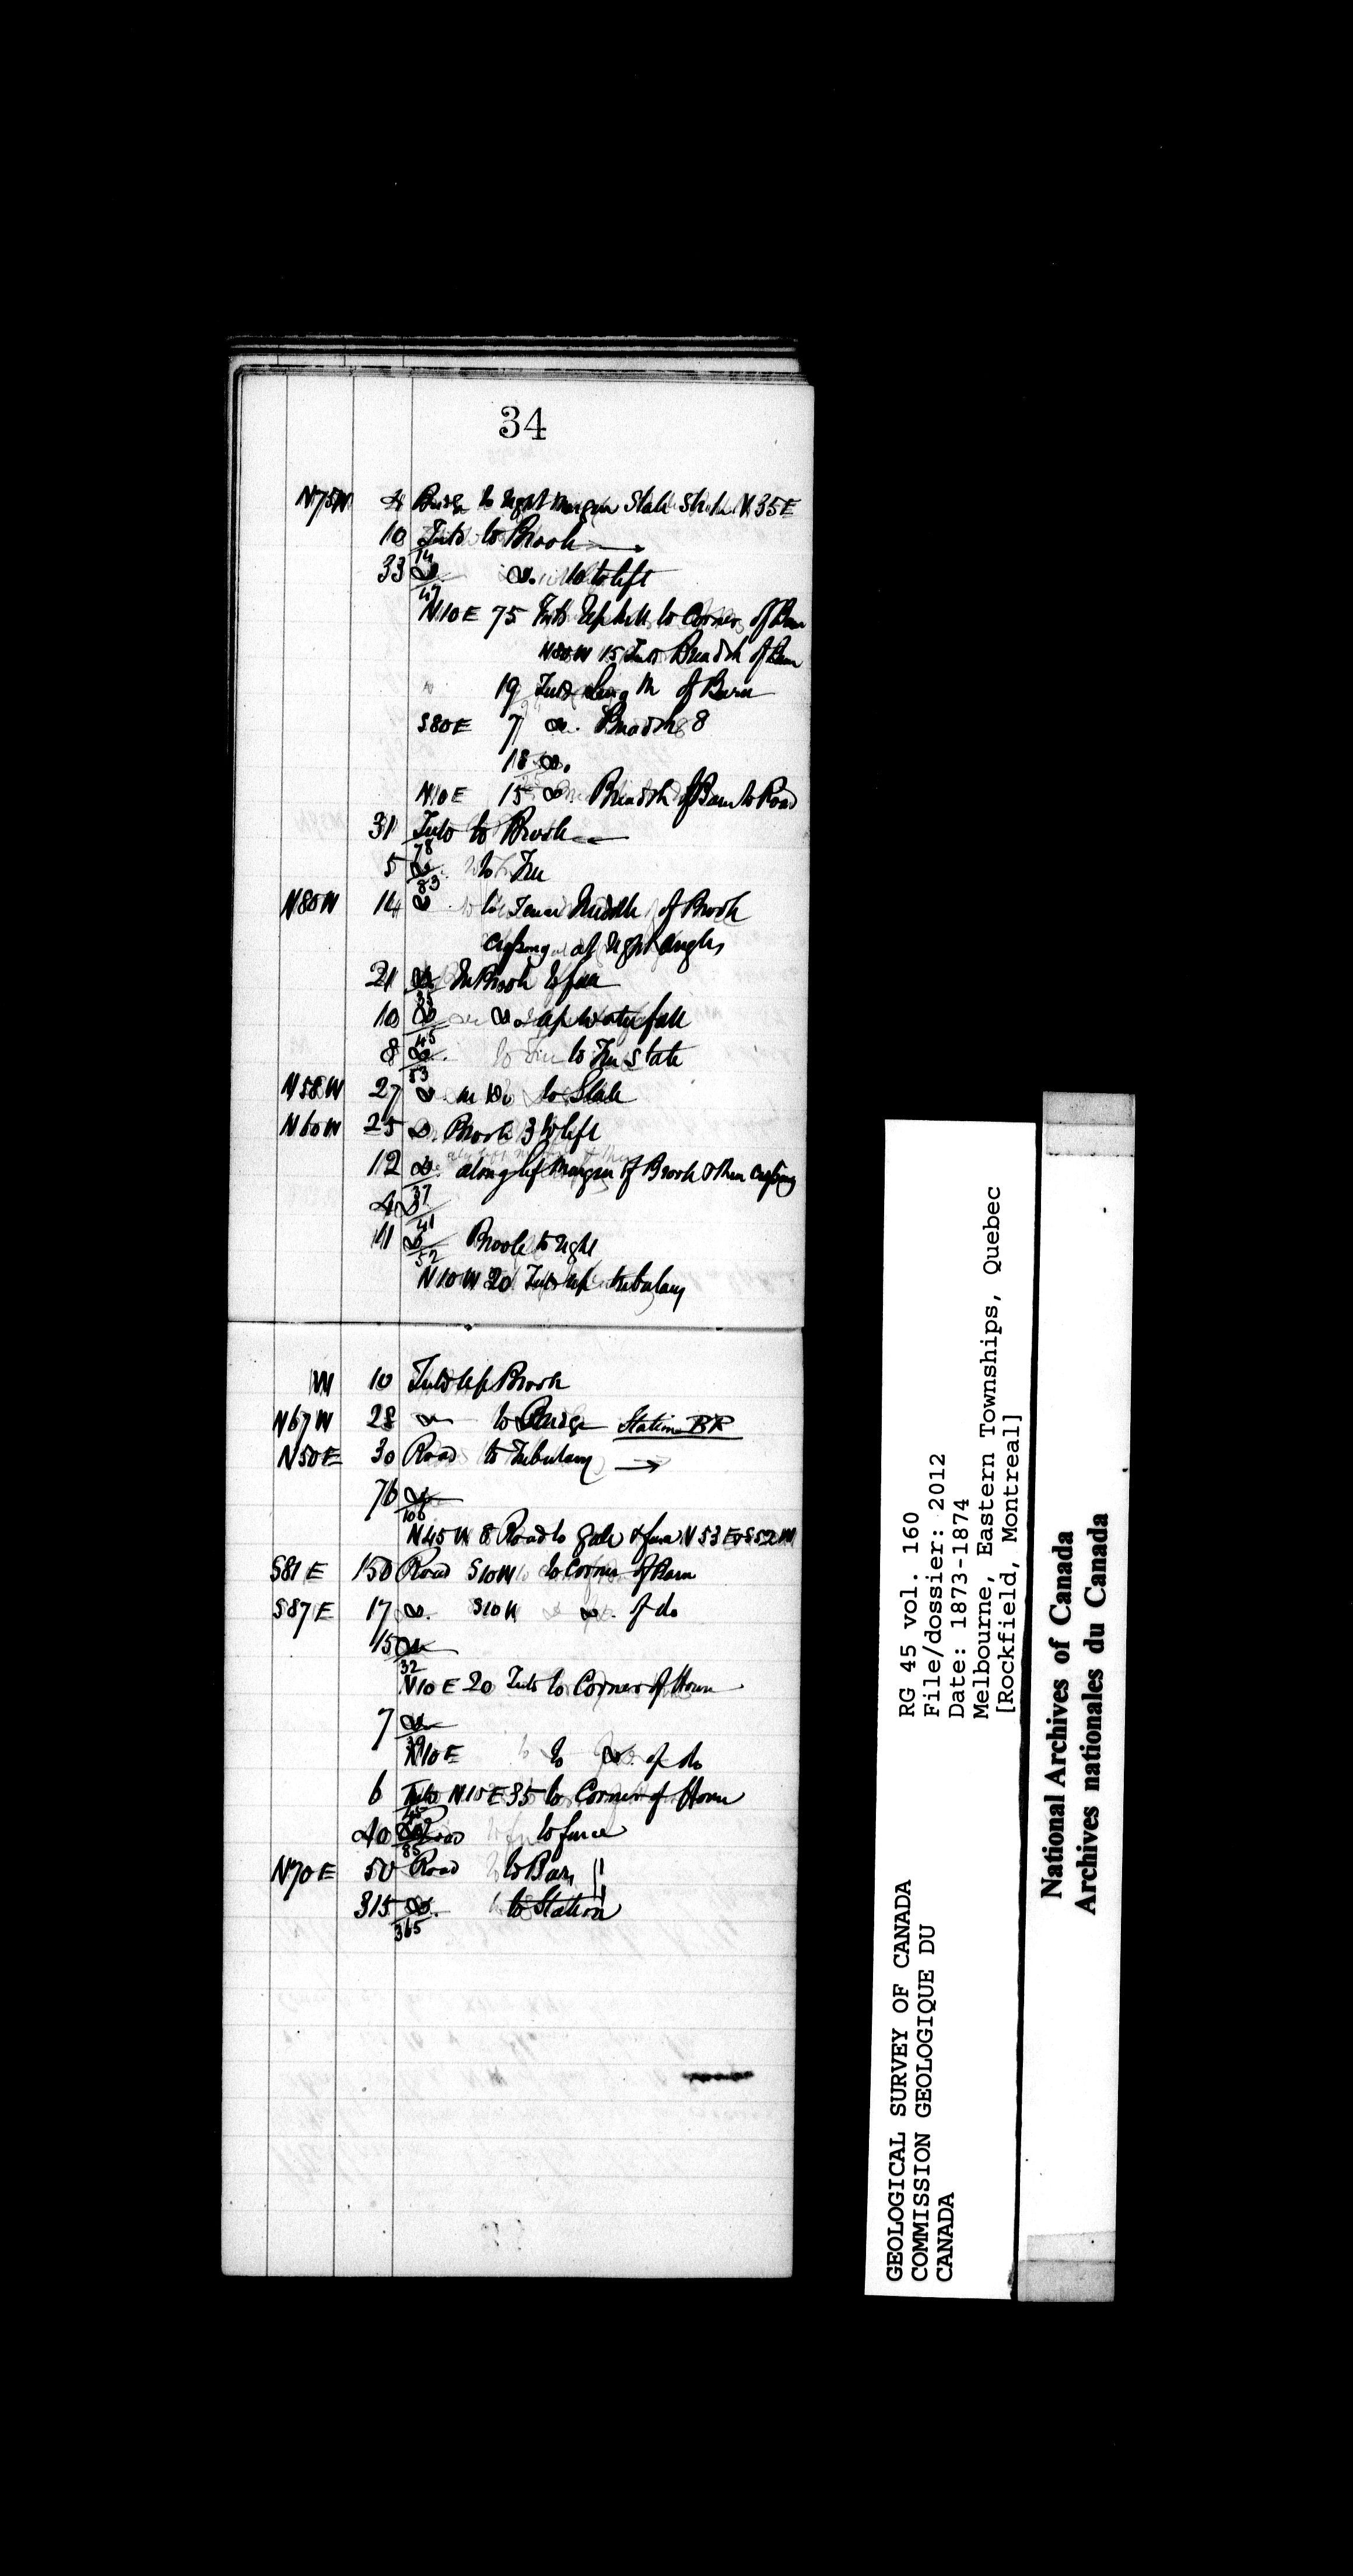 34
N75W 4 Bridge to right margin Slate Strike N35E
10 Inld to Brook
14
33 Do. Do. 10 to left
47
N10E 75 up hill to Corner of Barn
N80W 15 Breadth of Barn
19 Length of Barn
S80E 7 Do. Breadth 8
18 Do.
N10E 15 Do Breadth of Barn to Road
31 to Brook
78
5 Do. to Tree
83
N80W 14 Do. to Fence Middle of Brook
crossing at right angles
21 Do In Brook to fall
35
10 Do Do up Waterfall
45
8 Do. to Tree Slate
53
N58W 27 Do. in Do to Slate
N60W 25 Do. Brook 3 to left
12 Do. along left Margin of Brook & then crossing
37
4 Do
41
11 Do Brook to right
52
N10W 20 up tributary
W 10 up Brook
N67W 28 Do to Bridge Station BR
N50E 30 Road to Tributary
76 Do
106
N45W 8 Road to gate & fence N53E & S52W
S81E 150 Road S10W to Corner of Barn
S87E 17 Do. S10W Do. of do
15 Do
32
N10E 20 to Corner of House
7 Do
39
N10E to Do. of do
6 N10E 35 to Corner of House
45
40 Road to fence
85
N70E 50 Road to Bars
315 Do. to Station
365
GEOLOGICAL SURVEY OF CANADA
COMMISSION GEOLOGIQUE DU
CANADA
RG 45 vol. 160
File/dossier: 2012
Date: 1873-1874
Melbourne, Eastern Townships, Quebec
[Rockfield, Montreal]
National Archives of Canada
Archives nationales du Canada